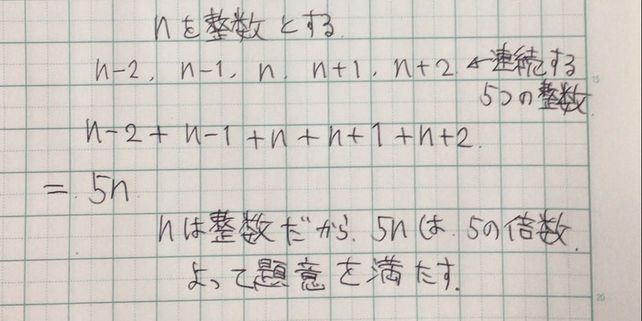 nを整数とする.
n-2, n-1, n, n+1, n+2 ←連続する
5つの整数
n-2+n-1+n+n+1+n+2.
= 5n
nは整数だから, 5nは 5の倍数.
よって題意を満たす.
15
20